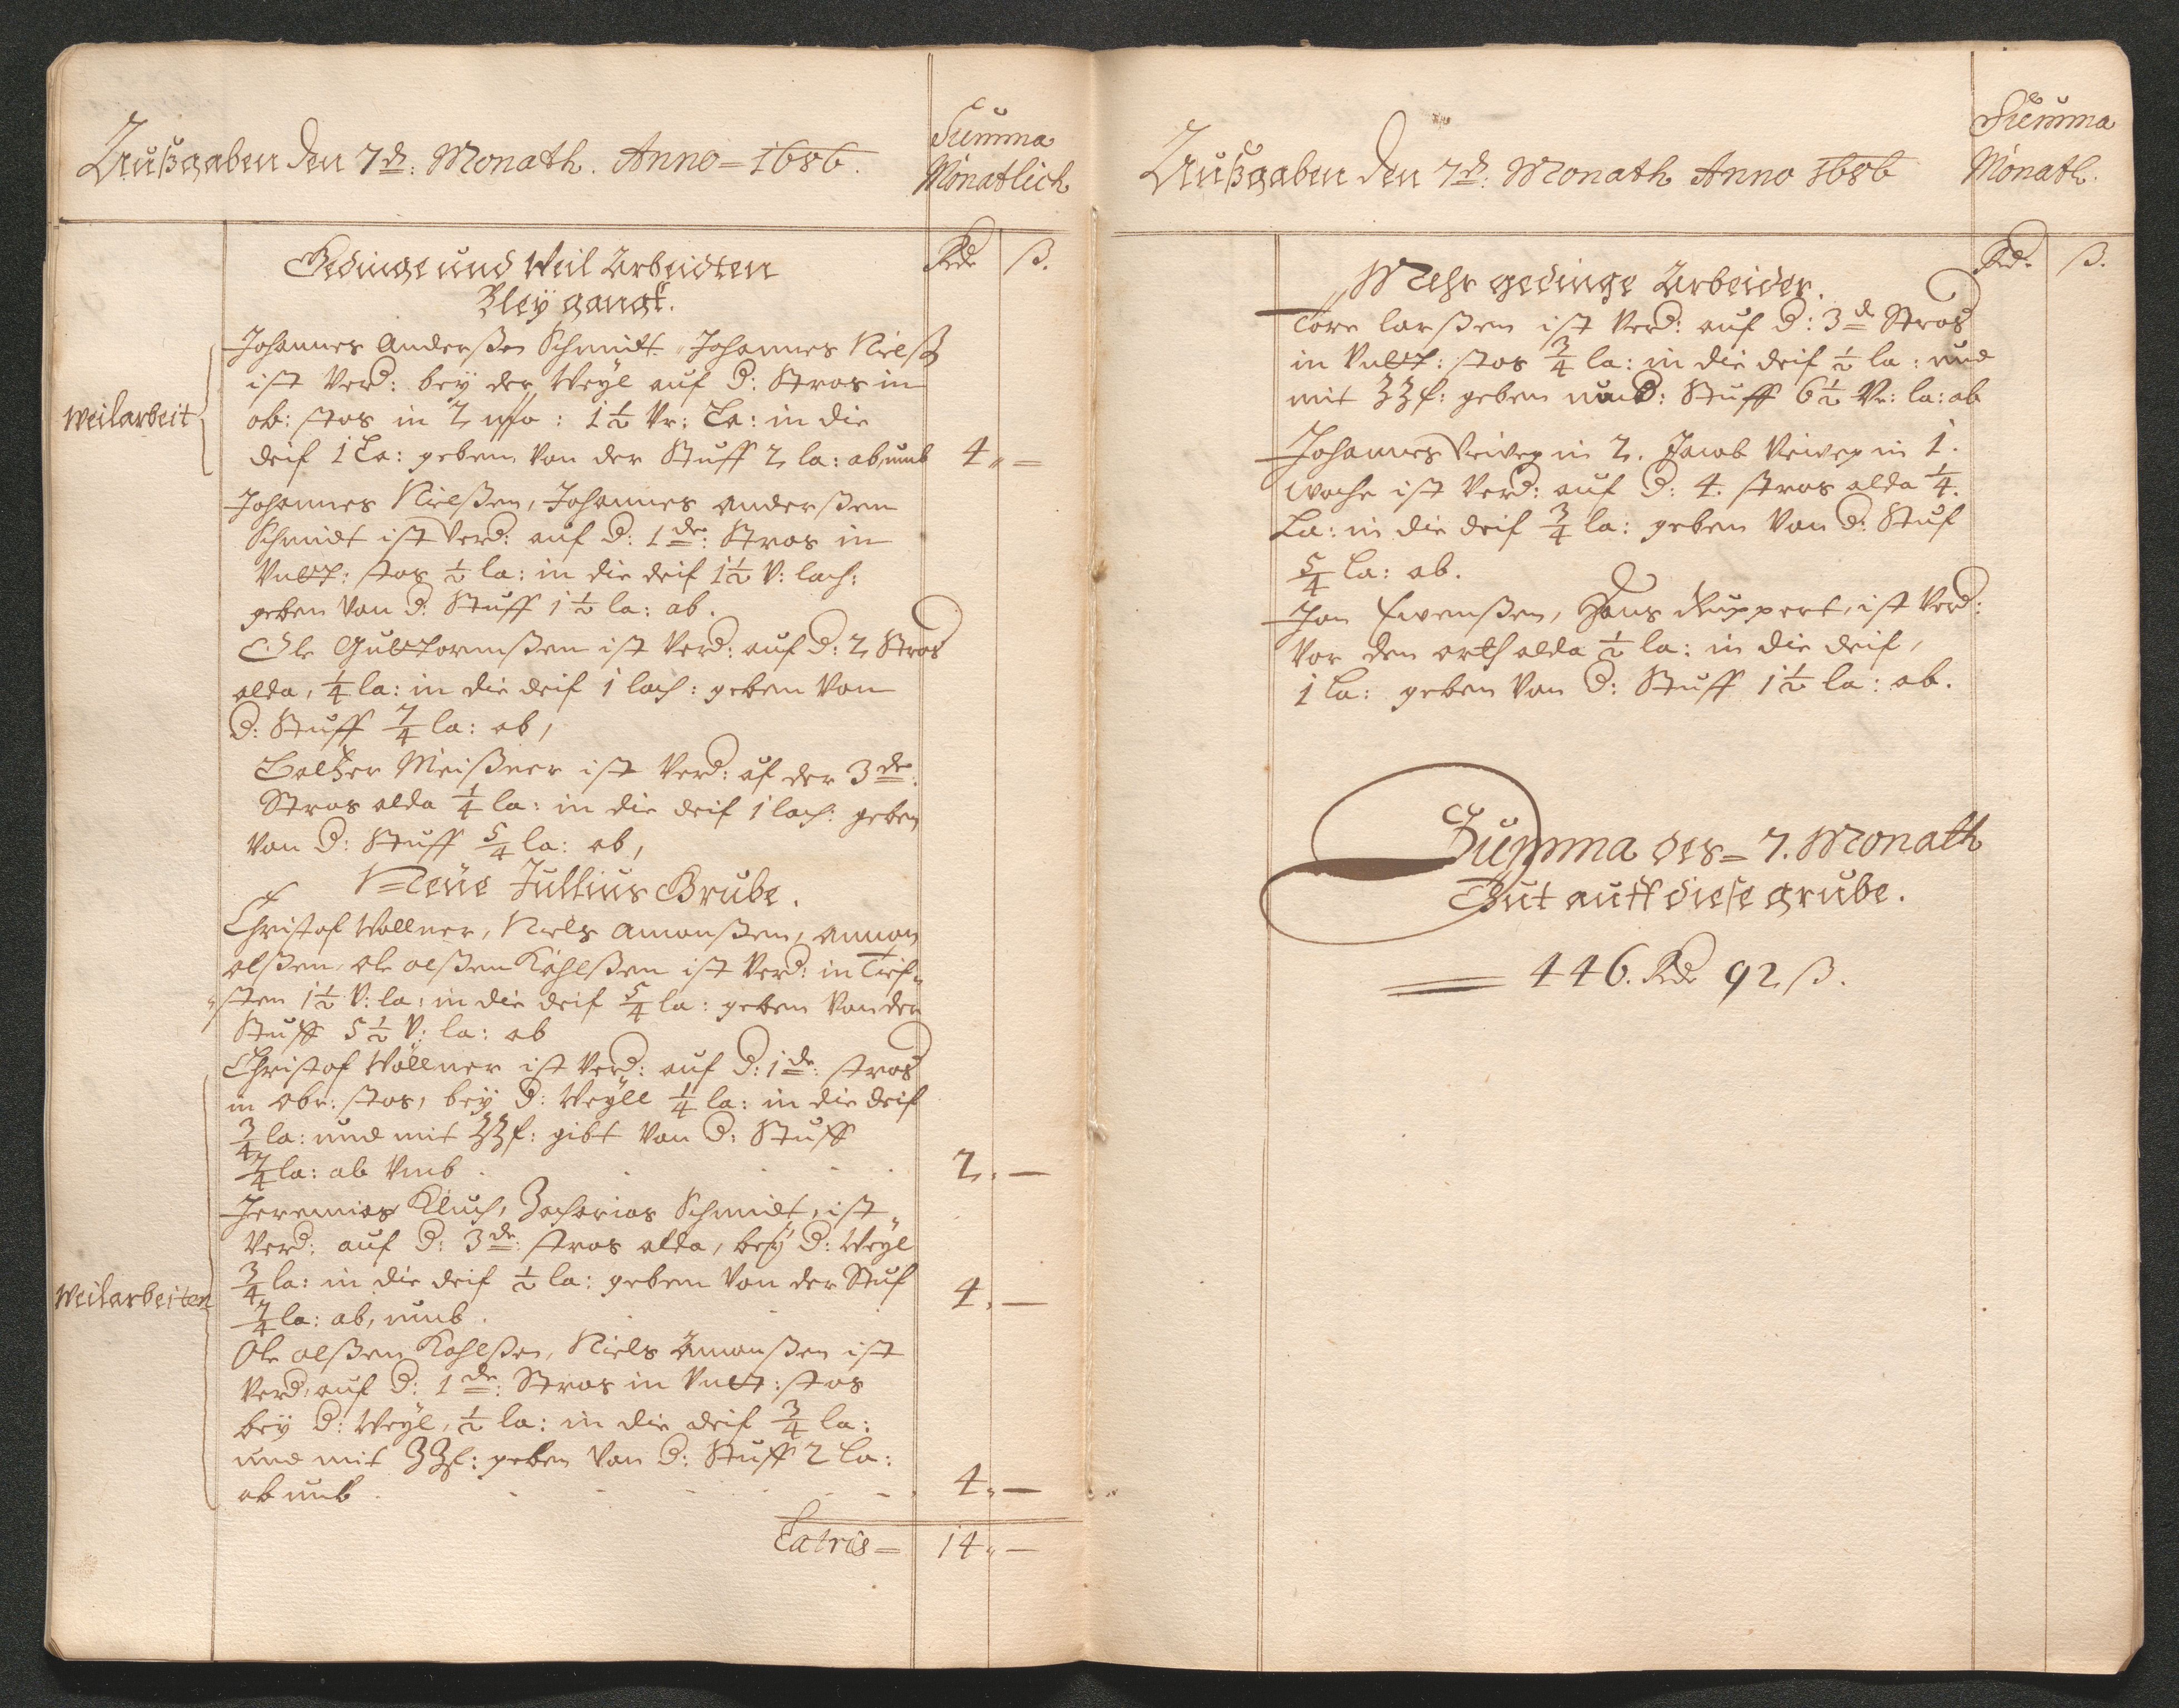 Außgaben den 7de: Monath. Anno = 1686.
Summa
Monatlich
Gedinge und Weil Arbeidten
Rdr ß.
Bleÿ gangk.
Johannes Anderßen Schmidt Johannes Nielß
ist Verd: beÿ der Weÿl auf d: Stros in
Weilarbeit
ob: stos in 2 : 1½ Vr: La: in die
deif 1 La: geben von der Stuff 2 la: ab, umb 4 " =
Johannes Nielßen, Johannes Anderßen
Schmidt ist Verd: auf d: 1de: Stros in
Unt: stos ½ la: in die deif 1½ V: lach:
geben von d: Stuff 1½ la: ab.
Ole Guttormßen ist Verd: auf d: 2 Stros
alda, ¼ la: in die deif 1 lach: geben von
d: Stuff 7/4 la: ab,
Baltzer Meißner ist Verd: uf der 3de:
Stros alda ¼ la: in die deif 1 lach: geben
von d: Stuff 5/4 la: ab,
Neüe Jullius Grube.
Christof Wollner, Niels Amonßen, Ammon
olßen, ole olßen Kohlßen ist Verd: in Tief-
sten 1½ V: la: in die deif 5/4 la: geben von der
Stuff 5½ V: la: ab
Christof Wöllner ist Verd: auf d: 1de: stros
in obr: stos, beÿ d: Weÿll ¼ la: in die deif
¾ la: und mit ZZf: gibt von d: Stuff
7/4 la: ab Vmb . 2 . —
Jeremias Kluch, Zacharias Schmidt, ist
Verd: auf d: 3de: stros alda, beÿ d: Weÿl
¾ la: in die deif ½ la: geben von der Stuf
Weilarbeiten
7/4 la: ab, umb . 4 . —
Ole olßen Kohlßen, Niels Amonßen ist
Verd: auf d: 1de: Stros in Unt: stos
beÿ d: Weÿl, ½ la: in die deif ¾ la:
und mit ZZf: geben von d: Stuff 2 la:
ab umb . 4 . —
Latris = 14 " —
Außgaben den 7de: Monath Anno 1686
Summa
Monatl.
Rdr. ß.
Mehr gedinge Arbeider.
Tore larßen ist Verd: auf d: 3de Stros
in Unt: stos ¾ la: in die deif ½ la: und
mit ZZf: geben von d: Stuff 6½ Vr: la: ab
Johannes in 2. Jacob in 1.
woche ist Verd: auf d: 4. stros alda ¼.
La: in die deif ¾ la: geben von d: Stuf
5/4 La: ab.
Jon Ewenßen, Hans Ruppert, ist Verd:
Vor den orth alda ½ la: in die deif,
1 La: geben von d: Stuff 1½ la: ab.
Summa des = 7. Monath
Gut auff diese grube.
446. Rdr 92 ß.